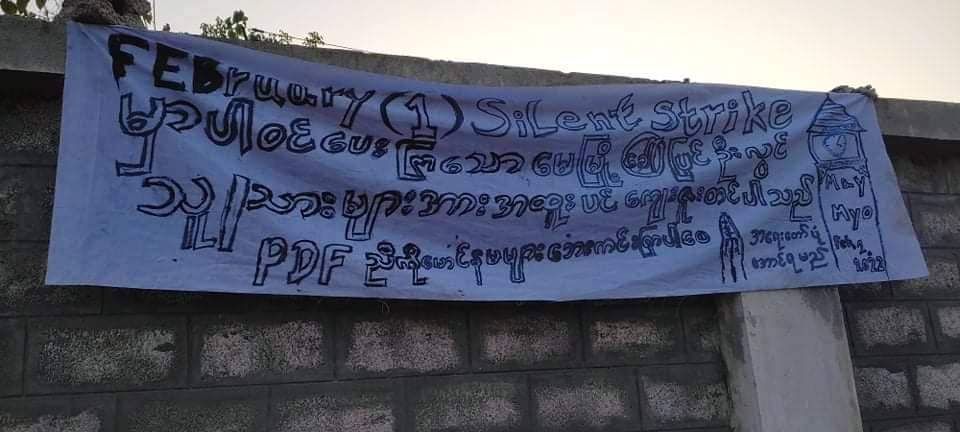 FEBruary (1) SiLent Strike
မှာပါဝင်ပေးကြသောမေမြို့မြေပြင်ဦးလွင်
သူ/သားများအားအထူးပင်ကျေးဇူးတင်ပါသည်
PDF ညီကိုမောင်နှမများဘေးကင်းကြပါစေ
အရေးတော်ပုံ
အောင်ရမည်
May
Myo
Feb,1,